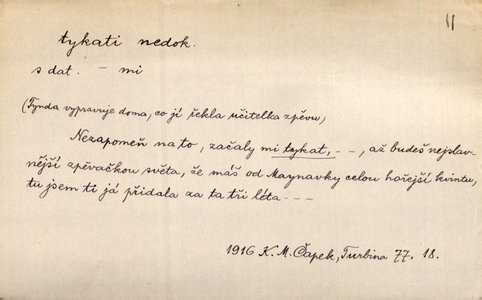 11
tykati nedok.
s dat. – mi
(Tynda vypravuje doma, co jí řekla učitelka zpěvu,)
Nezapomeň na to, začaly mi tykat, – –, až budeš nejslav-
nější zpěvačkou světa, že máš od Maynavky celou hořejší kvintu,
tu jsem ti já přidala za ta tři léta – – –
1916 K. M. Čapek, Turbina 77, 18.